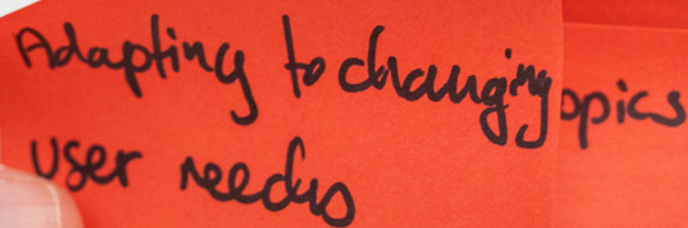 Adapting to changing
user needs
opics